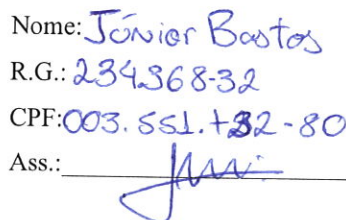 Nome: Júnior Bastos
R.G.: 234368-32
CPF: 003.551.732-80
Ass.: